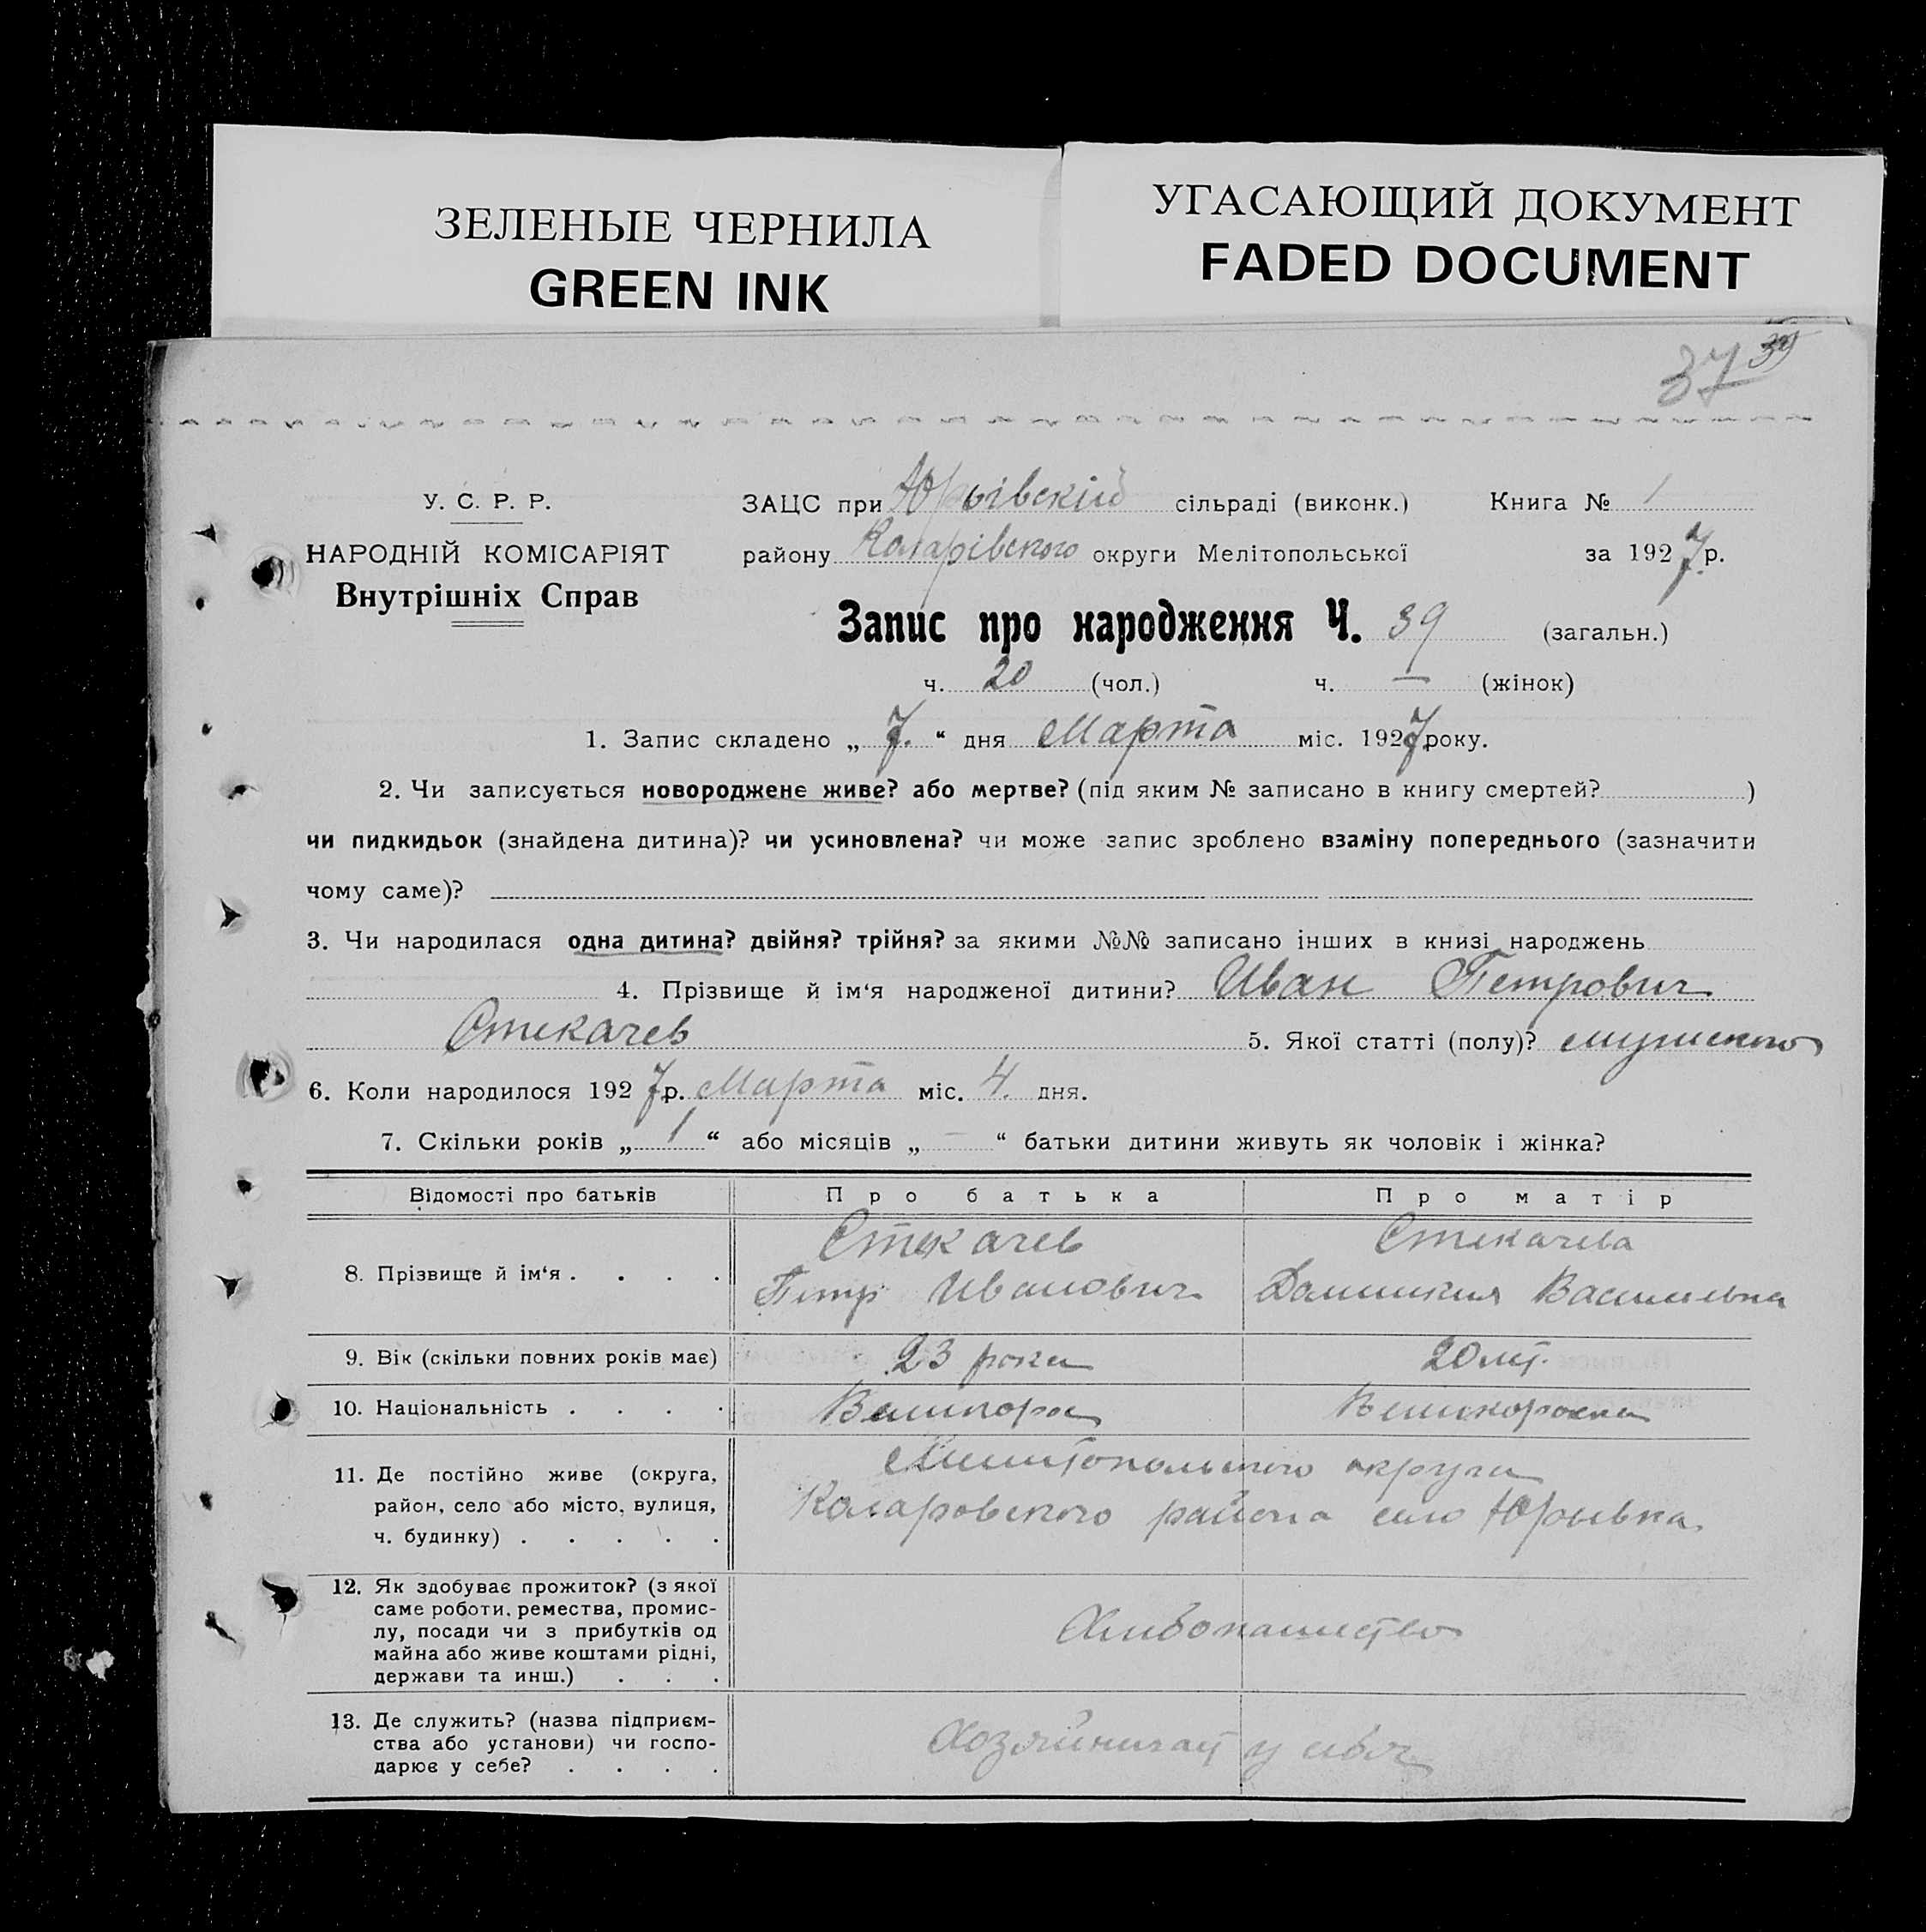 ЗЕЛЕНЫЕ ЧЕРНИЛА
GREEN INK
УГАСАЮЩИЙ ДОКУМЕНТ
FADED DOCUMENT
37 39
У. С. Р. Р.
НАРОДНІЙ КОМІСАРІЯТ
Внутрішніх Справ
ЗАЦС при Юрьівскій сільраді (виконк.) Книга № 1
району Коларівского округи Мелітопольської за 1927 р.
Запис про народження Ч. 39 (загальн.)
ч. 20 (чол.) ч. — (жінок)
1. Запис складено „ 7. “ дня Марта міс. 1927 року.
2. Чи записується новороджене живе? або мертве? (під яким № записано в книгу смертей? )
чи пидкидьок (знайдена дитина)? чи усиновлена? чи може запис зроблено взаміну попереднього (зазначити
чому саме)?
3. Чи народилася одна дитина? двійня? трійня? за якими №№ записано інших в книзі народжень
4. Прізвище й ім‘я народженої дитини? Иван Петрович
Стекачев 5. Якої статті (полу)? мужского
6. Коли народилося 1927 р. Марта міс. 4. дня.
7. Скільки років „ 1 “ або місяців „ — “ батьки дитини живуть як чоловік і жінка?
Відомості про батьків Про батька Про матір
8. Прізвище й ім‘я . . . .
Стекачев
Петр Иванович
Стекачева
Домникия Васильевна
9. Вік (скільки повних років має) 23 рока 20 лет.
10. Національність . . . . Великорос Великороска
11. Де постійно живе (округа,
район, село або місто, вулиця,
ч. будинку) . . . . .
Мелитопольского округа
Коларовского района село Юрьевка
12. Як здобуває прожиток? (з якої
саме роботи, ремества, промис-
лу, посади чи з прибутків од
майна або живе коштами рідні,
держави та инш.) . . .
Хлибопашество
13. Де служить? (назва підприєм-
ства або установи) чи госпо-
дарює у себе? . . . .
Хозяйничает у себя